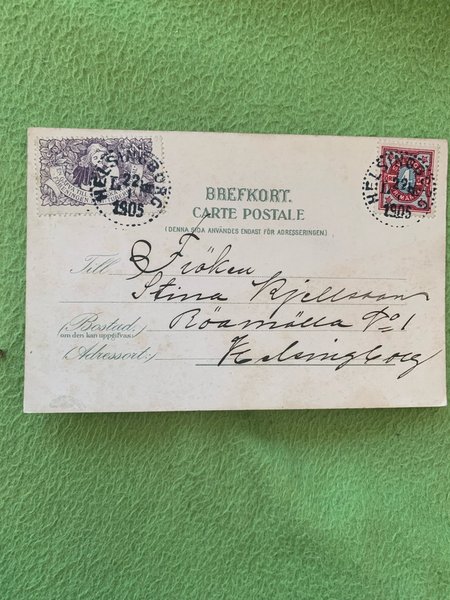 HELSINGBORG
22
1905
HELSINGBORG
22
1905
BREFKORT.
CARTE POSTALE
(DENNA SIDA ANVÄNDES ENDAST FÖR ADRESSERINGEN.)
Till Fröken
Stina Kjellsson
(Bostad, Röamölla No 1
om den kan uppgifvas)
(Adressort:) Helsingborg